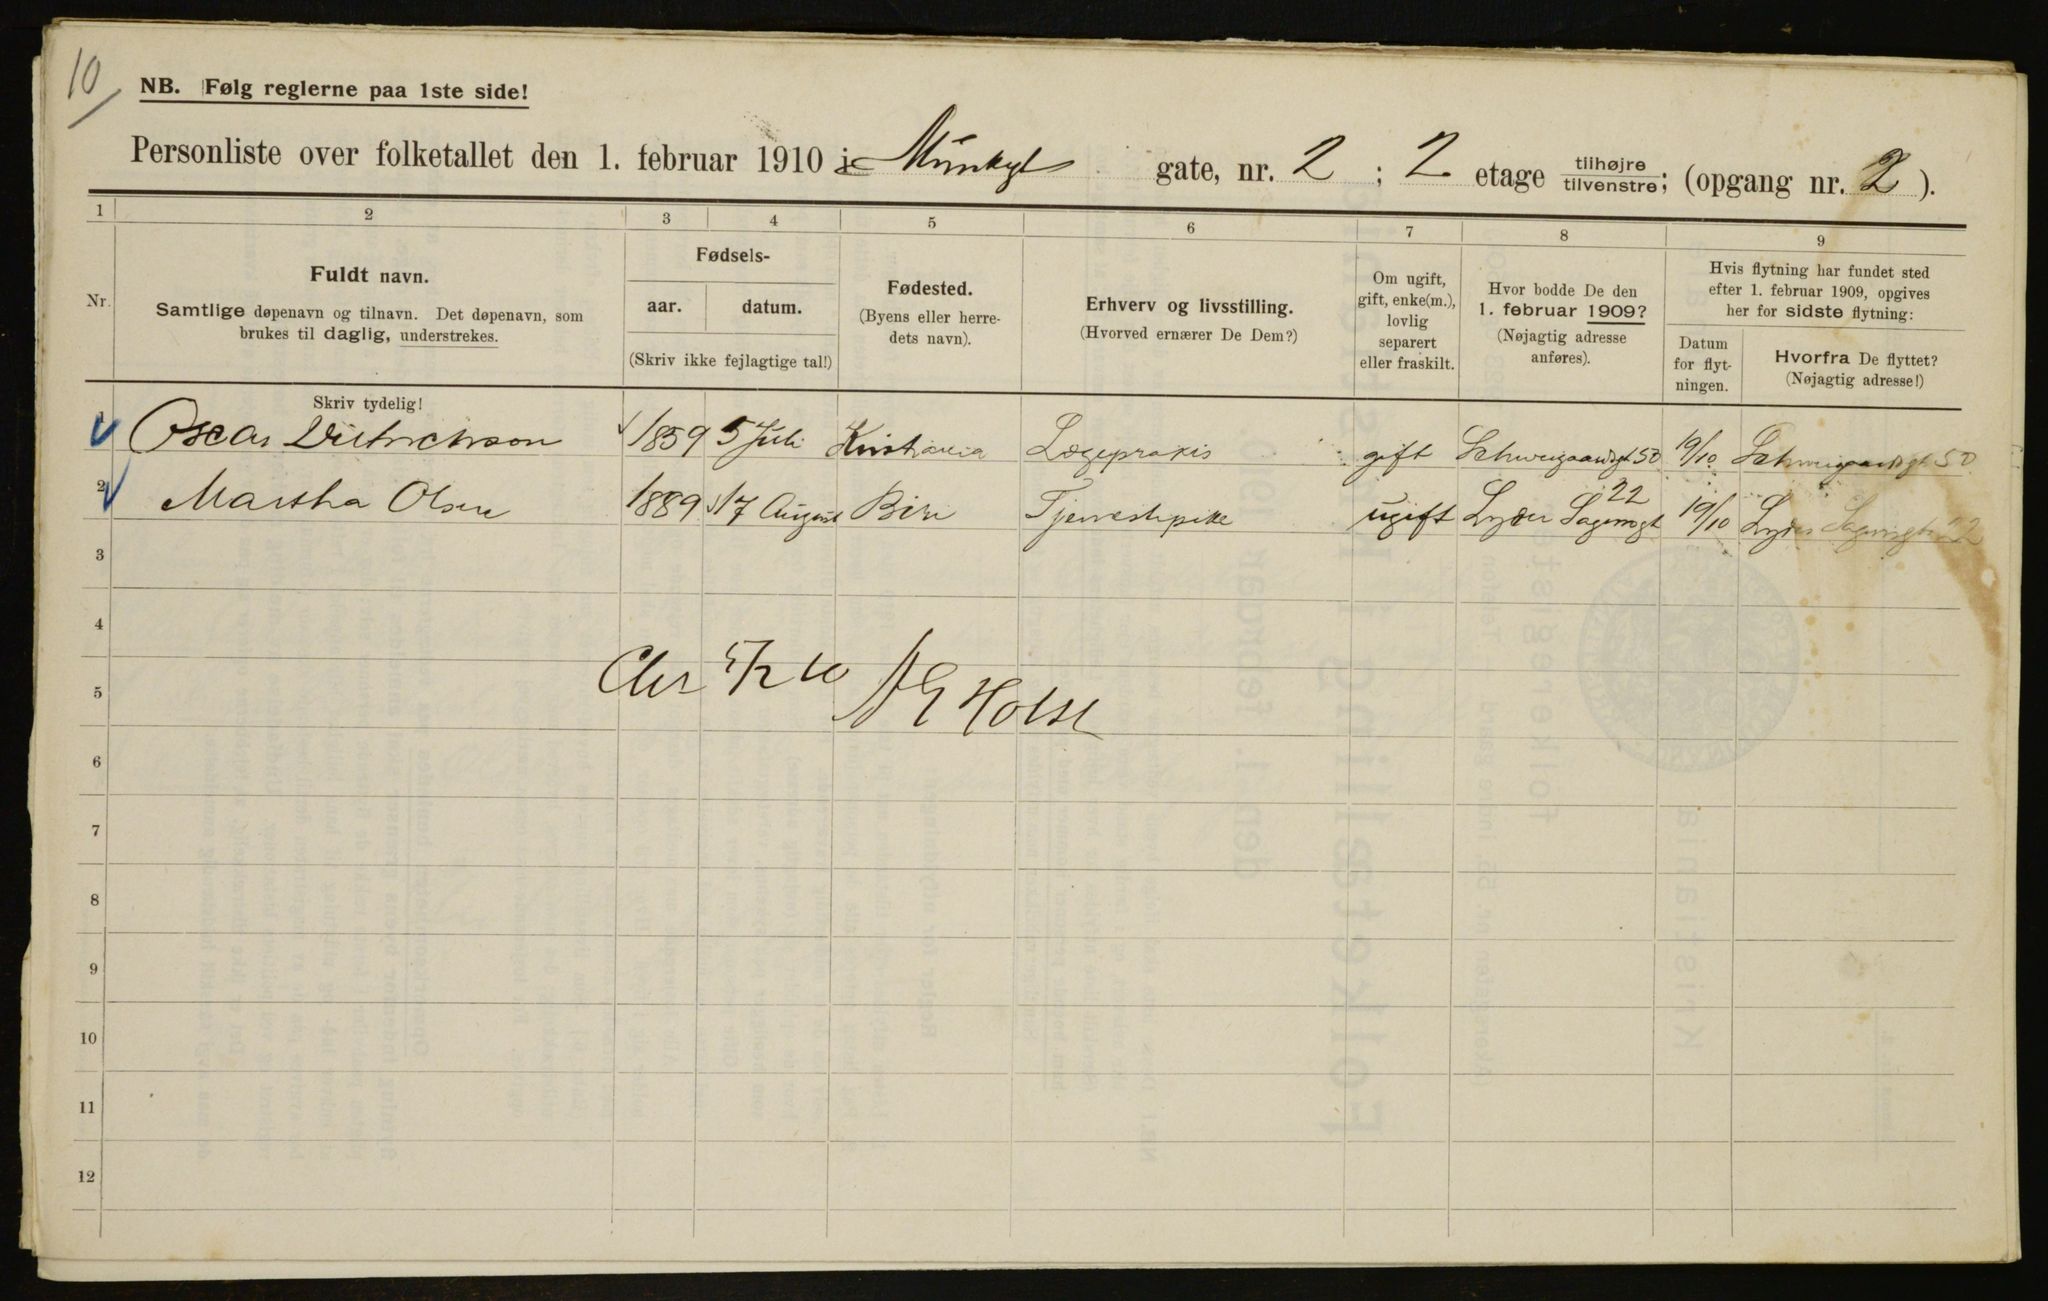 10
NB. Følg reglerne paa 1ste side!
Personliste over folketallet den 1. februar 1910 i Munkegt gate, nr. 2 ; 2 etage tilhøjre tilvenstre; (opgang nr. 2 ).
1 2 3 4 5 6 7 8 9
Nr.
Fuldt navn.
Samtlige døpenavn og tilnavn. Det døpenavn, som
brukes til daglig, understrekes.
Fødsels-
aar. datum.
(Skriv ikke fejlagtige tal!)
Fødested.
(Byens eller herre-
dets navn).
Erhverv og livsstilling.
(Hvorved ernærer De Dem?)
Om ugift,
gift, enke(m.),
lovlig
separert
eller fraskilt.
Hvor bodde De den
1. februar 1909?
(Nøjagtig adresse
anføres).
Hvis flytning har fundet sted
efter 1. februar 1909, opgives
her for sidste flytning:
Datum
for flyt-
ningen.
Hvorfra De flyttet?
(Nøjagtig adresse!)
Skriv tydelig!
1 Oscar Dietrichson 1859 5 Juli Kristiania Lægepraxis gift Schweigaardsgt 50 19/10 Schweigaardsgt 50
2 Martha Olsen 1889 17 August Biri Tjenestepike ugift Lyder Sagensgt 22 19/10 Lyder Sagensgt 22
3
4
Chr 5/2 10 Holst
5
6
7
8
9
10
11
12